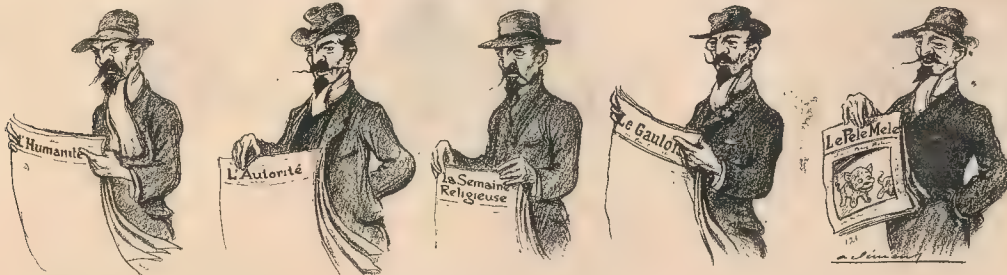 L'Humanité
L'Autorité
La Semaine
Religieuse
Le Gaulois
Le Pele Mele